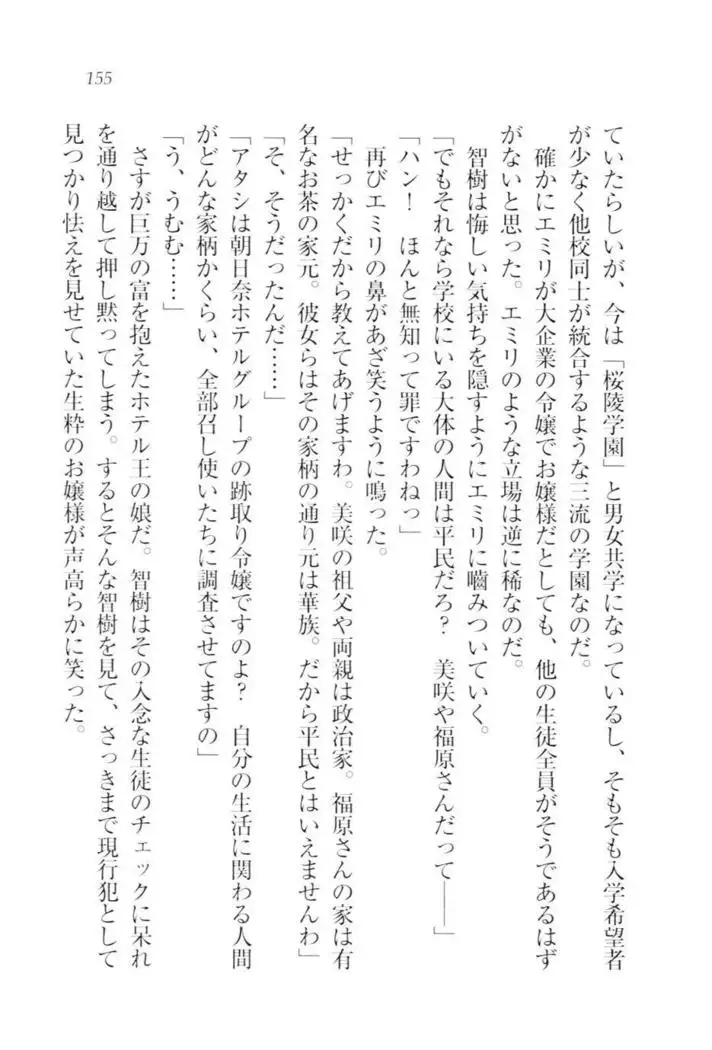 155
ていたらしいが、今は「桜陵学園」と男女共学になっているし、そもそも入学希望者
が少なく他校同士が統合するような三流の学園なのだ。
　確かにエミリが大企業の令嬢でお嬢様だとしても、他の生徒全員がそうであるはず
がないと思った。エミリのような立場は逆に稀なのだ。
　智樹は悔しい気持ちを隠すようにエミリに嚙みついていく。
「でもそれなら学校にいる大体の人間は平民だろ？　美咲や福原さんだって――」
「ハン！　ほんと無知って罪ですわねっ」
　再びエミリの鼻があざ笑うように鳴った。
「せっかくだから教えてあげますわ。美咲の祖父や両親は政治家。福原さんの家は有
名なお茶の家元。彼女らはその家柄の通り元は華族。だから平民とはいえませんわ」
「そ、そうだったんだ……」
「アタシは朝日奈ホテルグループの跡取り令嬢ですのよ？　自分の生活に関わる人間
がどんな家柄かくらい、全部召し使いたちに調査させてますの」
「う、うむむ……」
　さすが巨万の富を抱えたホテル王の娘だ。智樹はその入念な生徒のチェックに呆れ
を通り越して押し黙ってしまう。するとそんな智樹を見て、さっきまで現行犯として
見つかり怯えを見せていた生粋のお嬢様が声高らかに笑った。